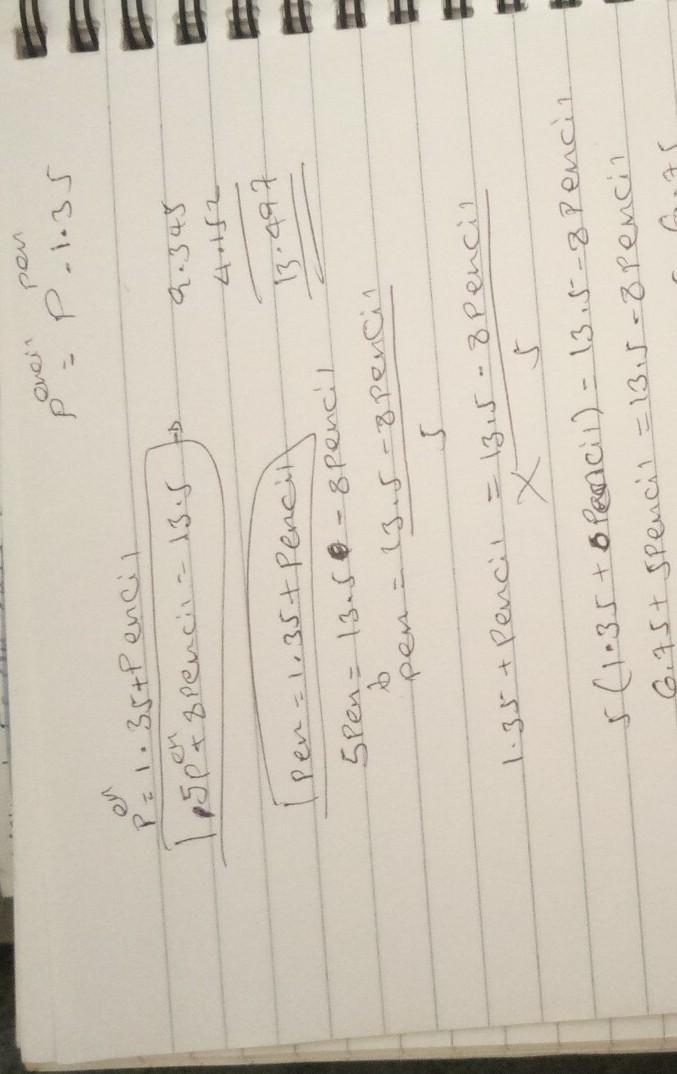 Pencil = Pen - 1.35
Pen = 1.35 + Pencil
1.5Pen + 8Pencil = 13.5 →
9.345
4.152
13.497
Pen = 1.35 + Pencil
5Pen = 13.5 - 8Pencil
Pen = 13.5 - 8Pencil
5
1.35 + Pencil = 13.5 - 8Pencil
5
5(1.35 + Pencil) = 13.5 - 8Pencil
6.75 + 5Pencil = 13.5 - 8Pencil